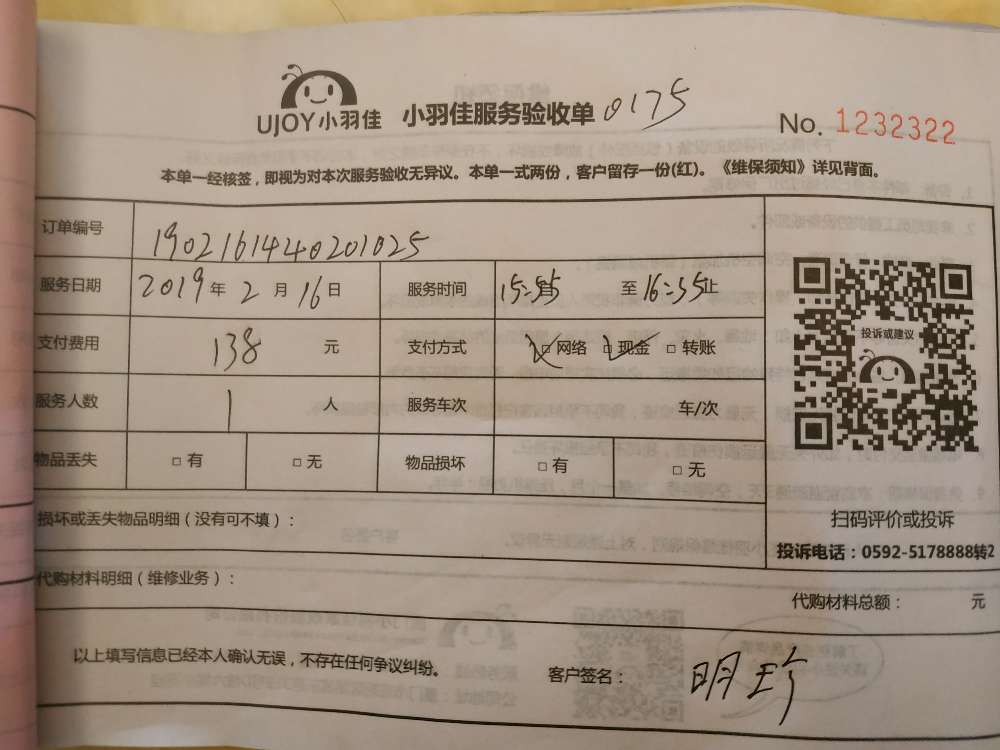 UJOY小羽佳 小羽佳服务验收单 0175
No. 1232322
本单一经核签，即视为对本次服务验收无异议。本单一式两份，客户留存一份(红)。《维保须知》详见背面。
订单编号 1902161440201025
服务日期 2019年 2月 16日 服务时间 15:35 至 16:35止
支付费用 138 元 支付方式 □网络 □现金 □转账
服务人数 1 人 服务车次 车/次
物品丢失 □有 □无 物品损坏 □有 □无
投诉或建议
扫码评价或投诉
投诉电话：0592-5178888转2
损坏或丢失物品明细（没有可不填）：
代购材料明细（维修业务）：
代购材料总额： 元
以上填写信息已经本人确认无误，不存在任何争议纠纷。 客户签名： 明珍